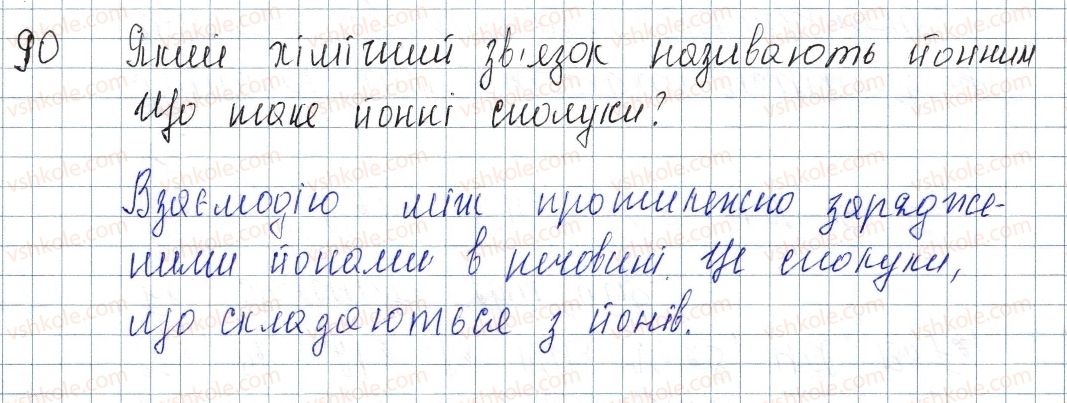 90 Який хімічний зв'язок називають йонним
Що таке йонні сполуки?
Взаємодію між протилежно зарядже-
ними йонами в речовині. Це сполуки,
що складаються з йонів.